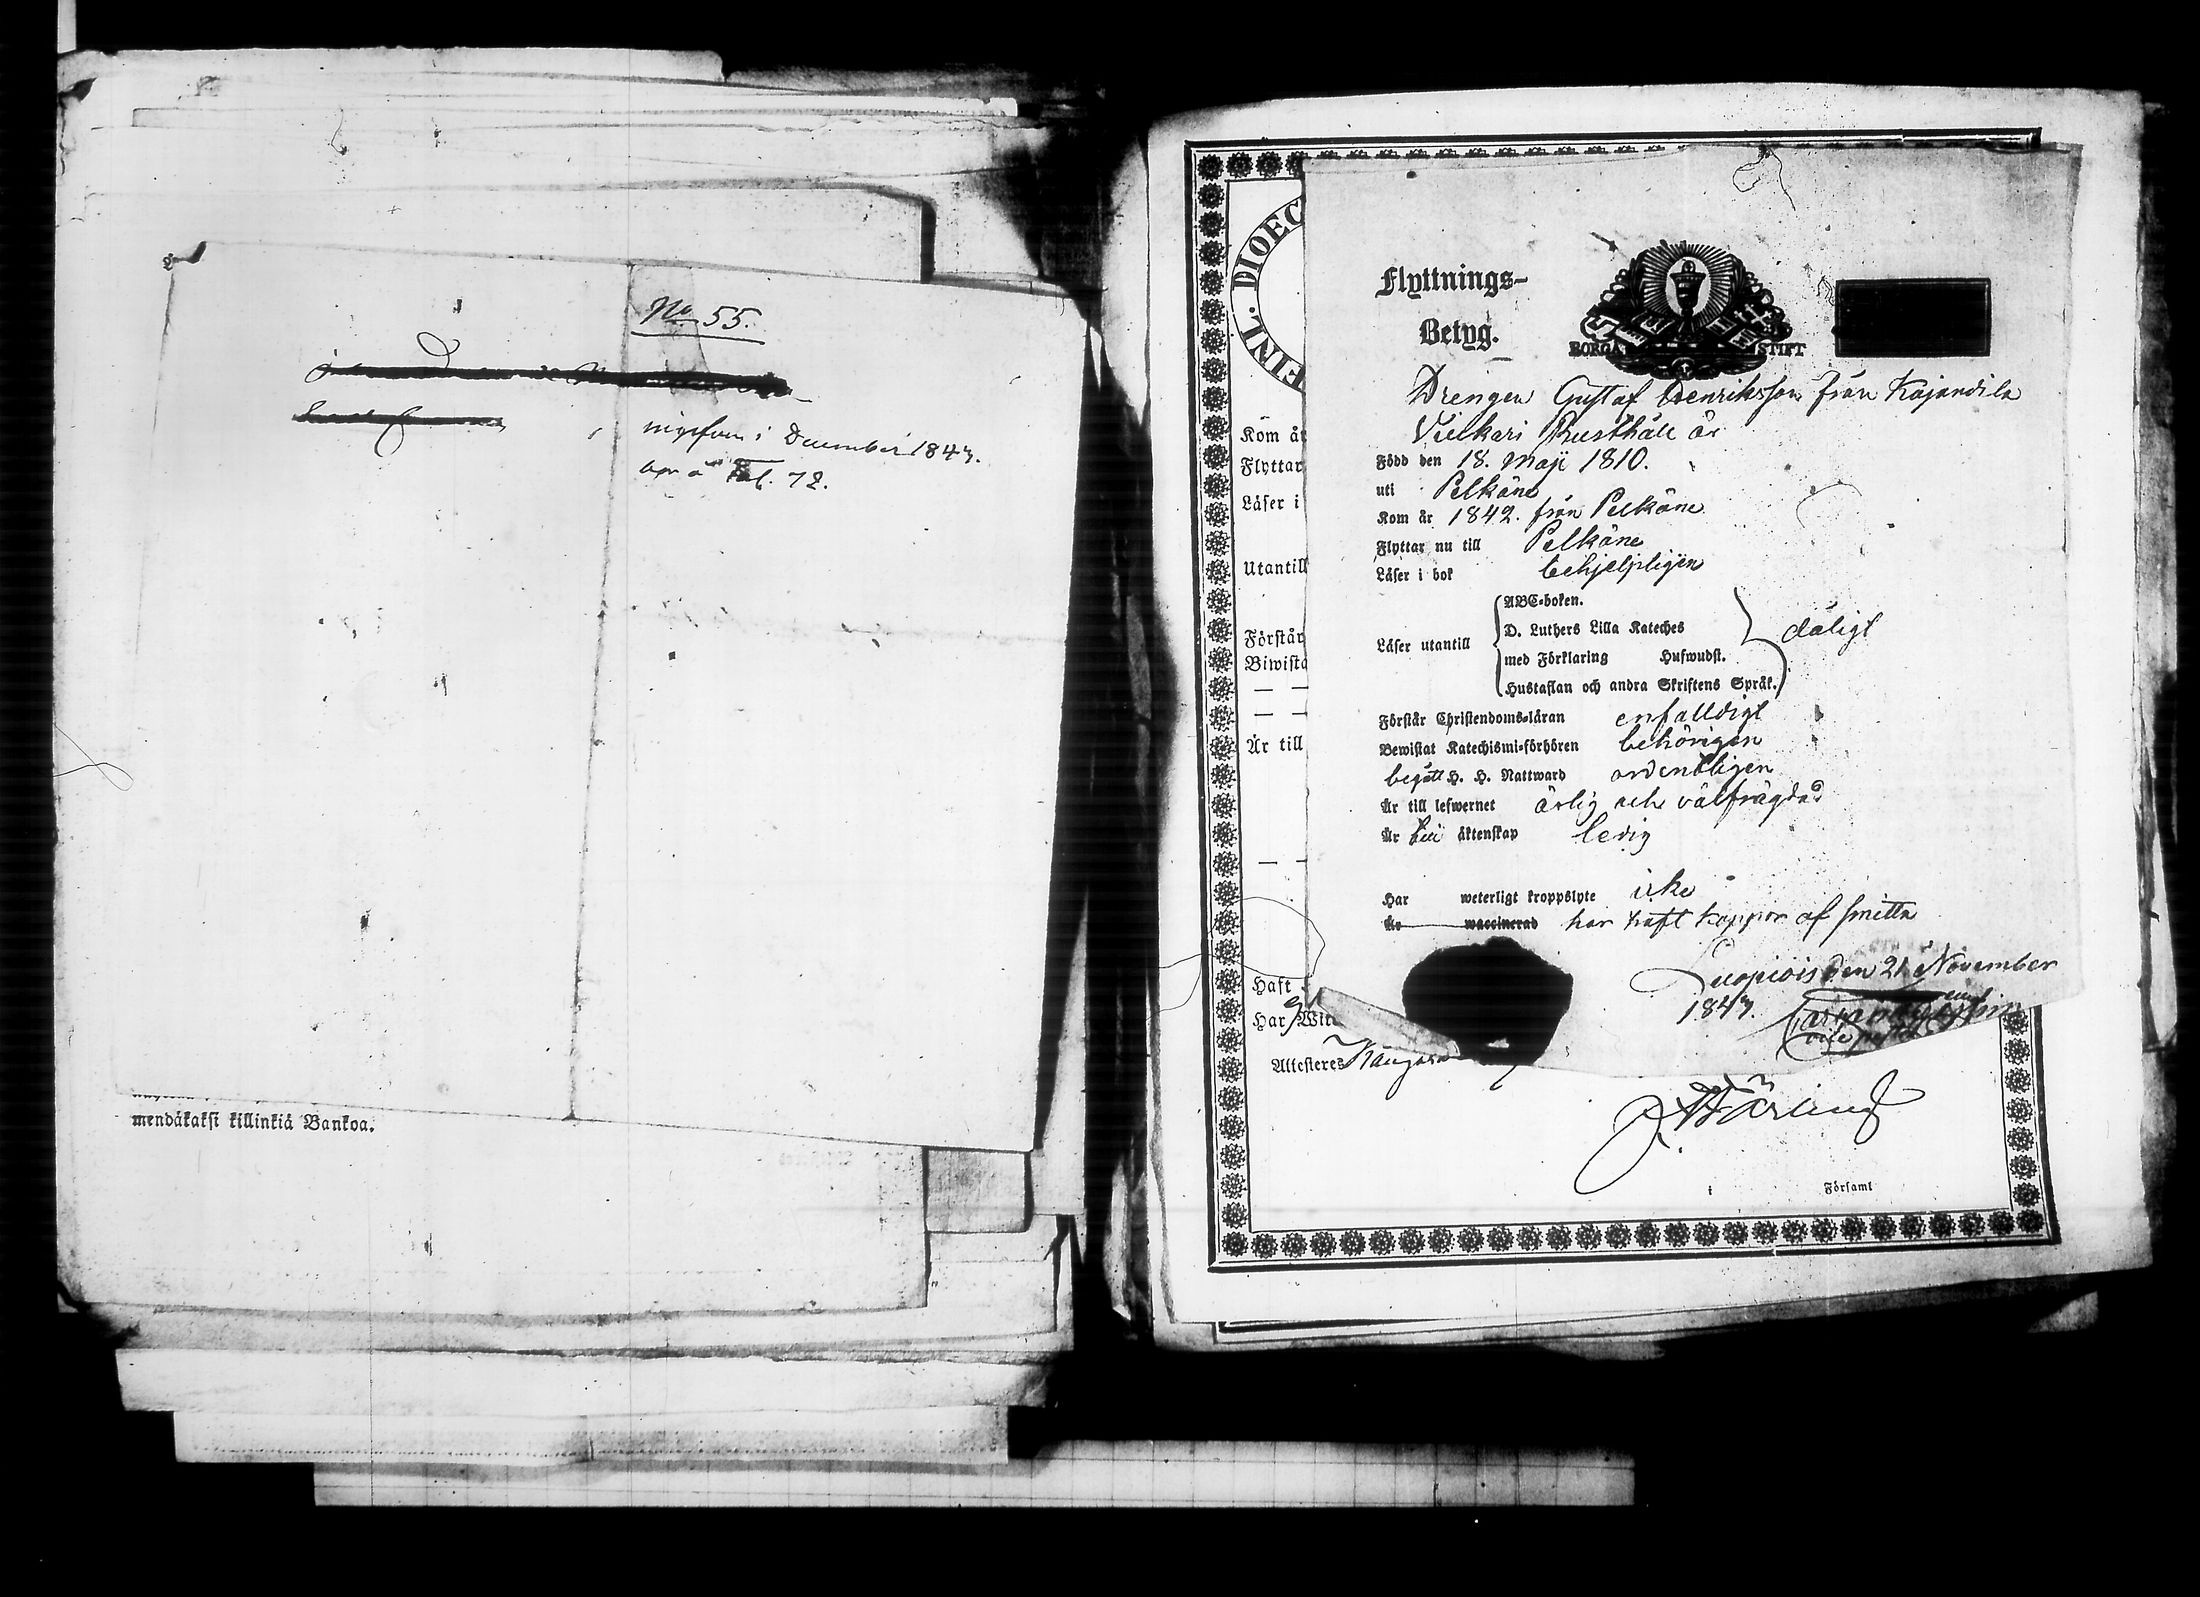 No 55.
i December 1843.
mendäkaksi killinkiä Bankoa.
HEINL. DIOEC
Kom år
Flyttar
Läser i
Utantill
Förstår
Biwista
Är till
Haft
Har
Attesteras
Församl
Flyttnings-
Betyg.
BORGÅ STIFT
Drengen Gustaf Henriksson från Kajandila
Rusthåll är
Född den 18. Maji 1810.
uti Pelkäne
Kom år 1842. från Pelkäne
Flyttar nu till Pelkäne
Läser i bok behjelpligen
Läser utantill
ABC-boken.
D. Luthers Lilla Kateches
med Förklaring Hufwudst.
Hustaflan och andra Skriftens Språk.
dåligt
Förstår Christendoms-läran enfalldigt
Bewistat Katechismi-förhören behörigen
begått H. H. Nattward ordentligen
Är till lefwernet ärlig och välfrägdad
Är till äktenskap ledig
Har weterligt kroppslyte icke
Är waccinerad har haft koppor af smitta
Luopiois den 21 November
1843.